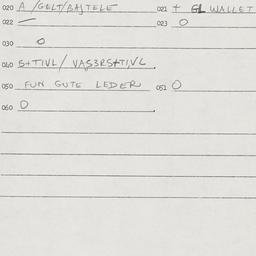 020 A /GELT/BAJTELE 021 + GL WALLET
022 — 023 0
030 0
040 5+TIVL/ VAS3RS+TI,VL
050 FUN GUTE LEDER 051 0
060 0